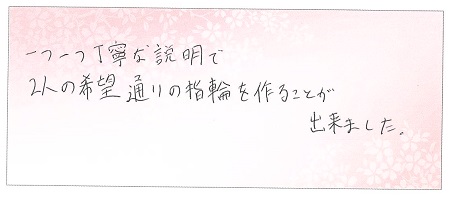 一つ一つ丁寧な説明で
2人の希望通りの指輪を作ることが
出来ました。